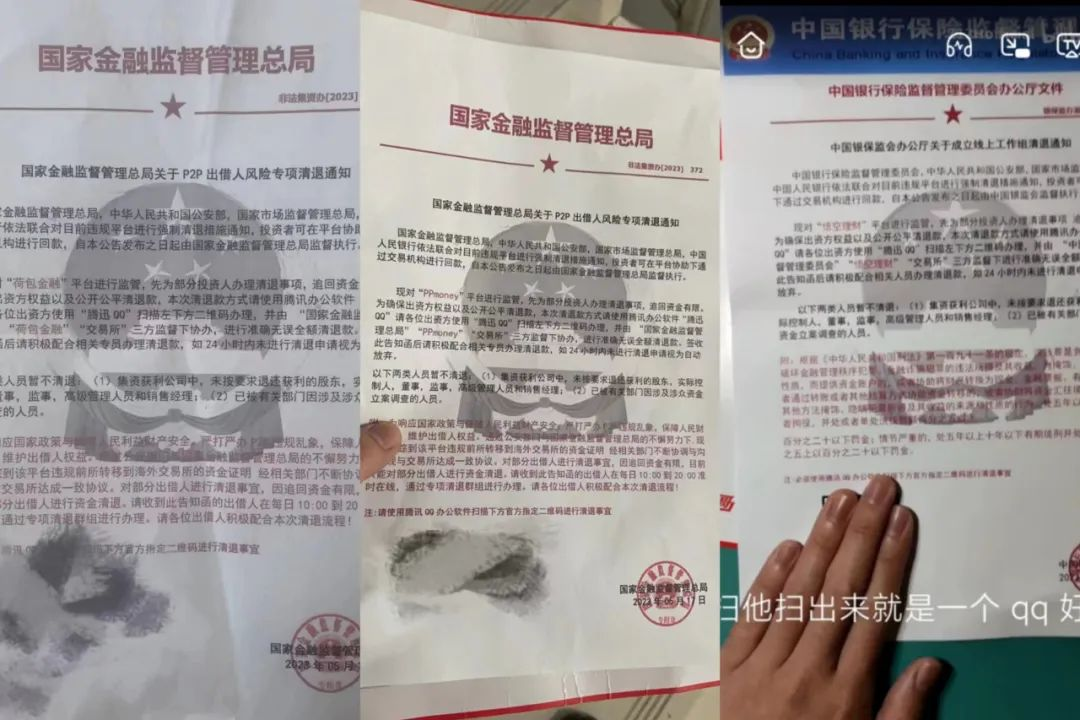 国家金融监督管理总局
非法集资办[2023]
国家金融监督管理总局关于 P2P 出借人风险专项清退通知
金融监督管理总局,中华人民共和国公安部,国家市场监督管理总局,
行依法联合对目前违规平台进行强制清退措施通知,投资者可在平台协助
机构进行回款,自本公告发布之日起由国家金融监督管理总局监督执行。
对“荷包金融”平台进行监管,先为部分投资人办理清退事项,追回资金
出资方权益以及公开公平清退款,本次清退款方式请使用腾讯办公软件
各位出借方使用“腾迅 QQ”扫描左下方二维码办理,并由 “国家金融监
“荷包金融” “交易所”三方监督下协办,进行准确无误全额清退款。
函后请积极配合相关专员办理清退款,如 24 小时内未进行清退申请视为
类人员暂不清退:(1)集资获利公司中,未按要求退还获利的股东,实
董事,监事,高级管理人员和销售经理;(2)已被有关部门因涉及涉众
查的人员。
响应国家政策与
人民利益财产安全,严打严办
违规乱象,保障人
维护出借人权益。
到该平台违规前所转移到海外交易所的资金证明 经相关部门不断协
交易所达成一致协议。对部分出借人进行清退事宜,因追回资金有限,
部分出借人进行资金清退。请收到此告知函的出借人在每日 10:00 到 20
通过专项清退群组进行办理。请各位出借人积极配合本次清退流程!
扫描下方官方指定二维码进行清退事宜
国家金融监督管
2023 年 05 月
国家金融监督管理总局
非法集资办[2023] 372
国家金融监督管理总局关于 P2P 出借人风险专项清退通知
国家金融监督管理总局,中华人民共和国公安部,国家市场监督管理总局,中国
人民银行依法联合对目前违规平台进行强制清退措施通知,投资者可在平台协助下通
过交易机构进行回款,自本公告发布之日起由国家金融监督管理总局监督执行。
现对“PPmoney”平台进行监管,先为部分投资人办理清退事项,追回资金有限,
为确保出资方权益以及公开公平清退款,本次清退款方式请使用腾讯办公软件“腾迅
QQ”请各位出借方使用“腾迅 QQ”扫描左下方二维码办理,并由 “国家金融监督管
理总局” “PPmoney” “交易所”三方监督下协办,进行准确无误全额清退款,签收
此告知函后请积极配合相关专员办理清退款,如 24 小时内未进行清退申请视为自动
放弃。
以下两类人员暂不清退:(1)集资获利公司中,未按要求退还获利的股东,实际控
制人,董事,监事,高级管理人员和销售经理;(2)已被有关部门因涉及涉众资金
立案调查的人员。
为响应国家政策与人民利益财产安全,严打严办
违规乱象,保障人民财
维护出借人权益。
国家金融监督管理总局的不懈努力下,现
踪到该平台违规前所转移到海外交易所的资金证明 经相关部门不断协调与向
与交易所达成一致协议。对部分出借人进行清退事宜,因追回资金有限,目前
能对部分出借人进行资金清退。请收到此告知函的出借人在每日 10:00 到 20 00 准
时在线,通过专项清退群组进行办理。请各位出借人积极配合本次清退流程!
注:请使用腾讯 QQ 办公软件扫描下方官方指定二维码进行清退事宜
国家金融监督管理总局
2023 年 05 月 17 日
专用章
中国银行保险监督管理
China Banking and Insurance
TV
中国银行保险监督管理委员会办公厅文件
银保监办
中国银保监会办公厅关于成立线上工作组清退通知
中国银行保险监督管理委员会,中华人民共和国公安部,国家市场监
中国人民银行依法联合对目前违规平台进行强制清退措施通知,投资者可
下通过交易机构进行回款,自本公告发布之日起由中国银监会监督执行。
现对“悟空理财”平台进行监管,先为部分投资人办理清退事项 追
为确保出资方权益以及公开公平清退款,本次清退款方式请使用腾讯办公
QQ”请各位出借方使用“腾迅 QQ”扫描左下方二维码办理,并由 “中
督管理委员会” “悟空理财” “交易所”三方监督下进行准确无误全额
此告知函后请积极配合相关人员办理清退款,如 24 小时内未进行清退申请
放弃。
以下两类人员暂不清退:(1)集资获利公司中,未按要求退还获利
际控制人、董事、监事、高级管理人员和销售经理;(2)已被有关部
资金立案调查的人员。
附:根据《中华人民共和国刑法》第一百九十一条的规定,
破坏金融管理秩序犯罪
金融诈骗犯罪的违法所得及其收益,
性质,而提供资金账户的,或者协助将财产转换为现金、
者通过转账或者其他结算方式协助资金转移的,或者协助将资金汇往
其他方法掩饰、隐瞒犯罪所得及其收益的来源和性质的,
处五年以
者拘役,并处或者单处洗钱数额百分之五以上
百分之二十以下罚金;情节严重的,处五年以上十年以下有期徒刑并处
之五以上百分之二十以下罚金。
注:必须使用腾讯 QQ 办公
扫描下方官方指定二维码进行清退事宜
扫他扫出来就是一个 qq 好